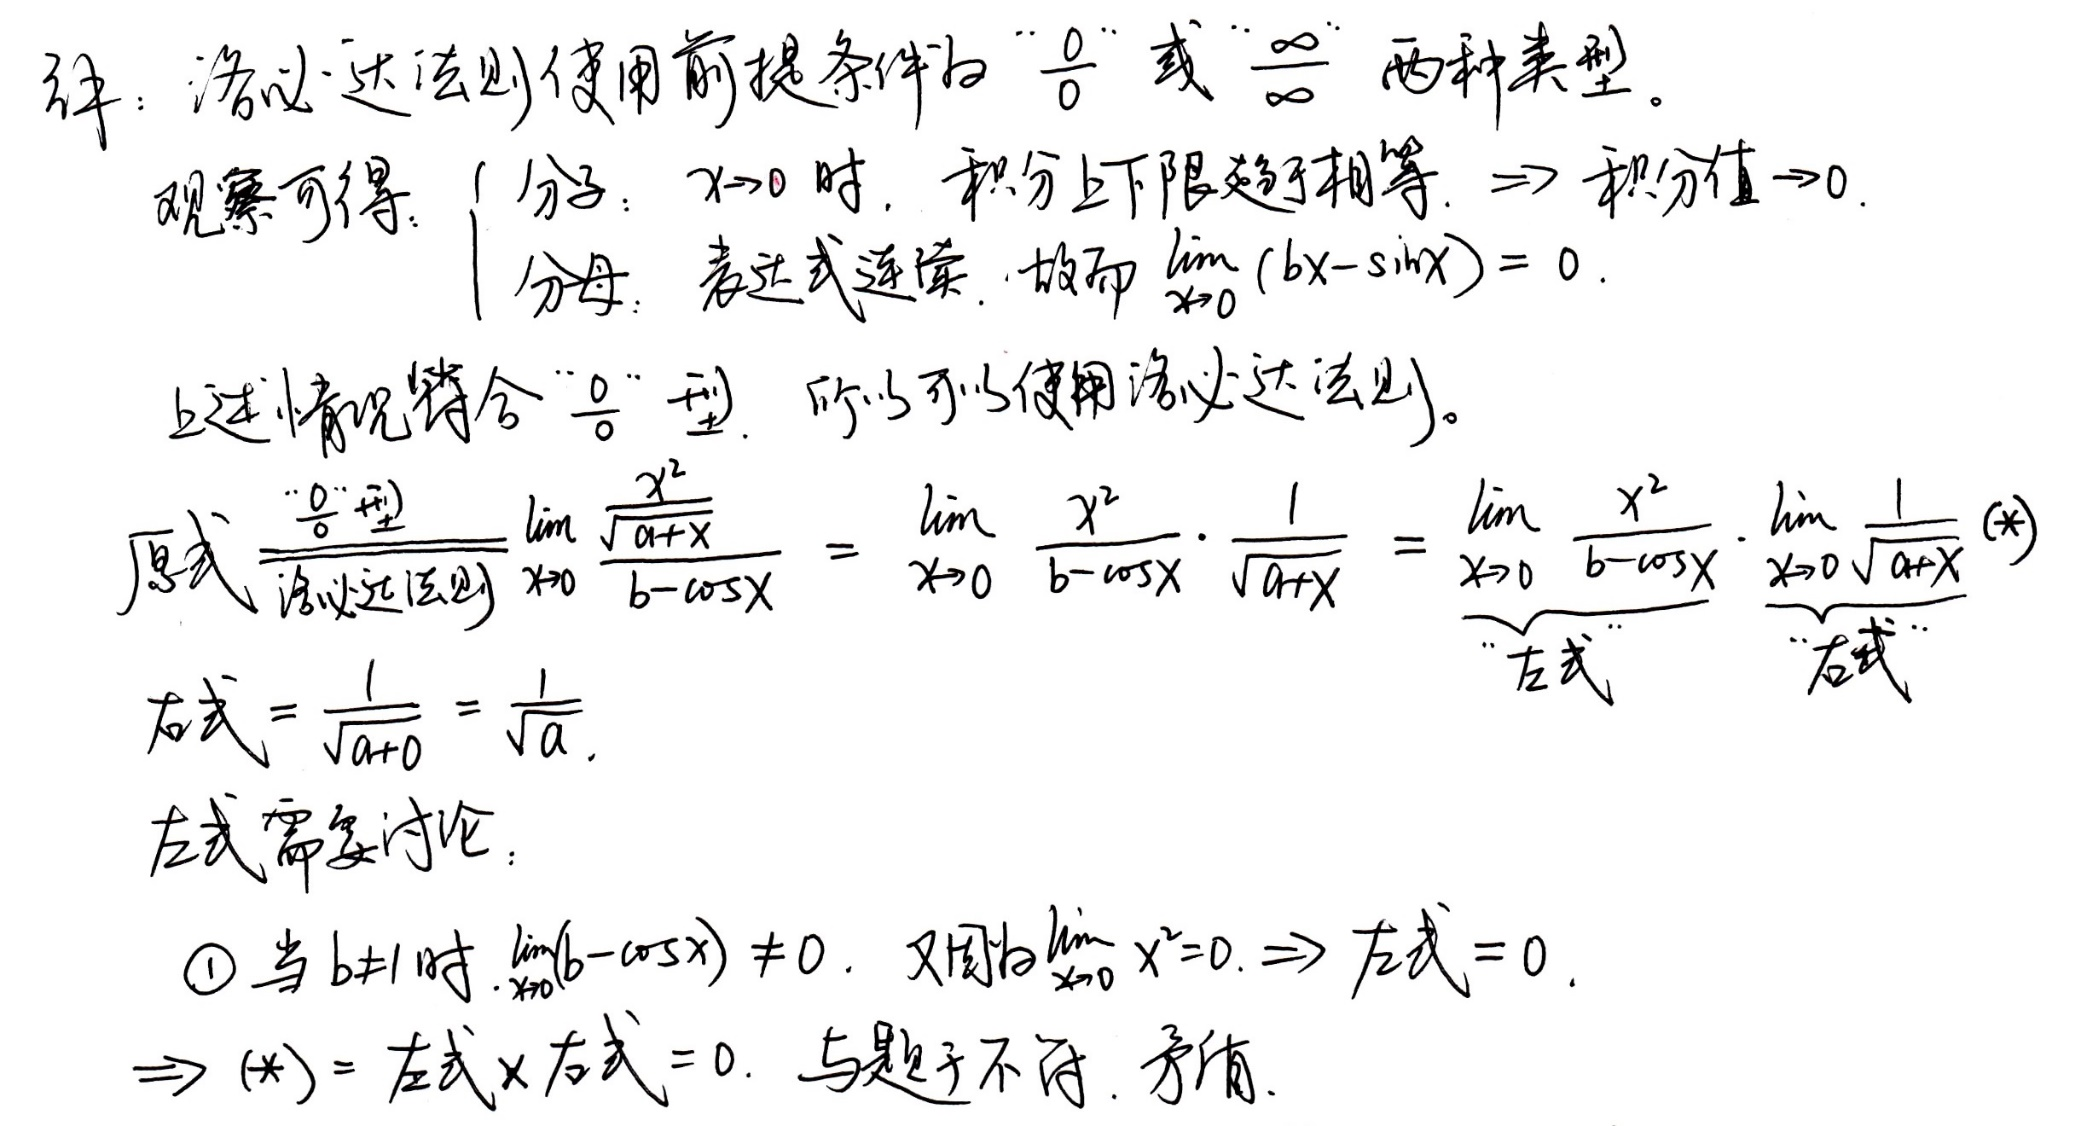 注：洛必达法则使用前提条件为 "0/0" 或 "∞/∞" 两种类型。
观察可得： { 分子： x→0 时， 积分上下限趋于相等. ⇒ 积分值→0.
分母： 表达式连续. 故而 lim_{x→0} (bx-sinx) = 0.
上述情况符合 "0/0" 型. 所以可以使用洛必达法则。
原式 ="0/0"型 洛必达法则= lim_{x→0} (x²/√(a+x))/(b-cosx) = lim_{x→0} x²/(b-cosx) · 1/√(a+x) = lim_{x→0} x²/(b-cosx) · lim_{x→0} 1/√(a+x) (*)
"左式" "右式"
右式 = 1/√(a+0) = 1/√a.
左式需要讨论：
① 当 b≠1 时. lim_{x→0}(b-cosx) ≠ 0. 又因为 lim_{x→0} x²=0. ⇒ 左式 = 0.
⇒ (*) = 左式 × 右式 = 0. 与题干不符. 矛盾.